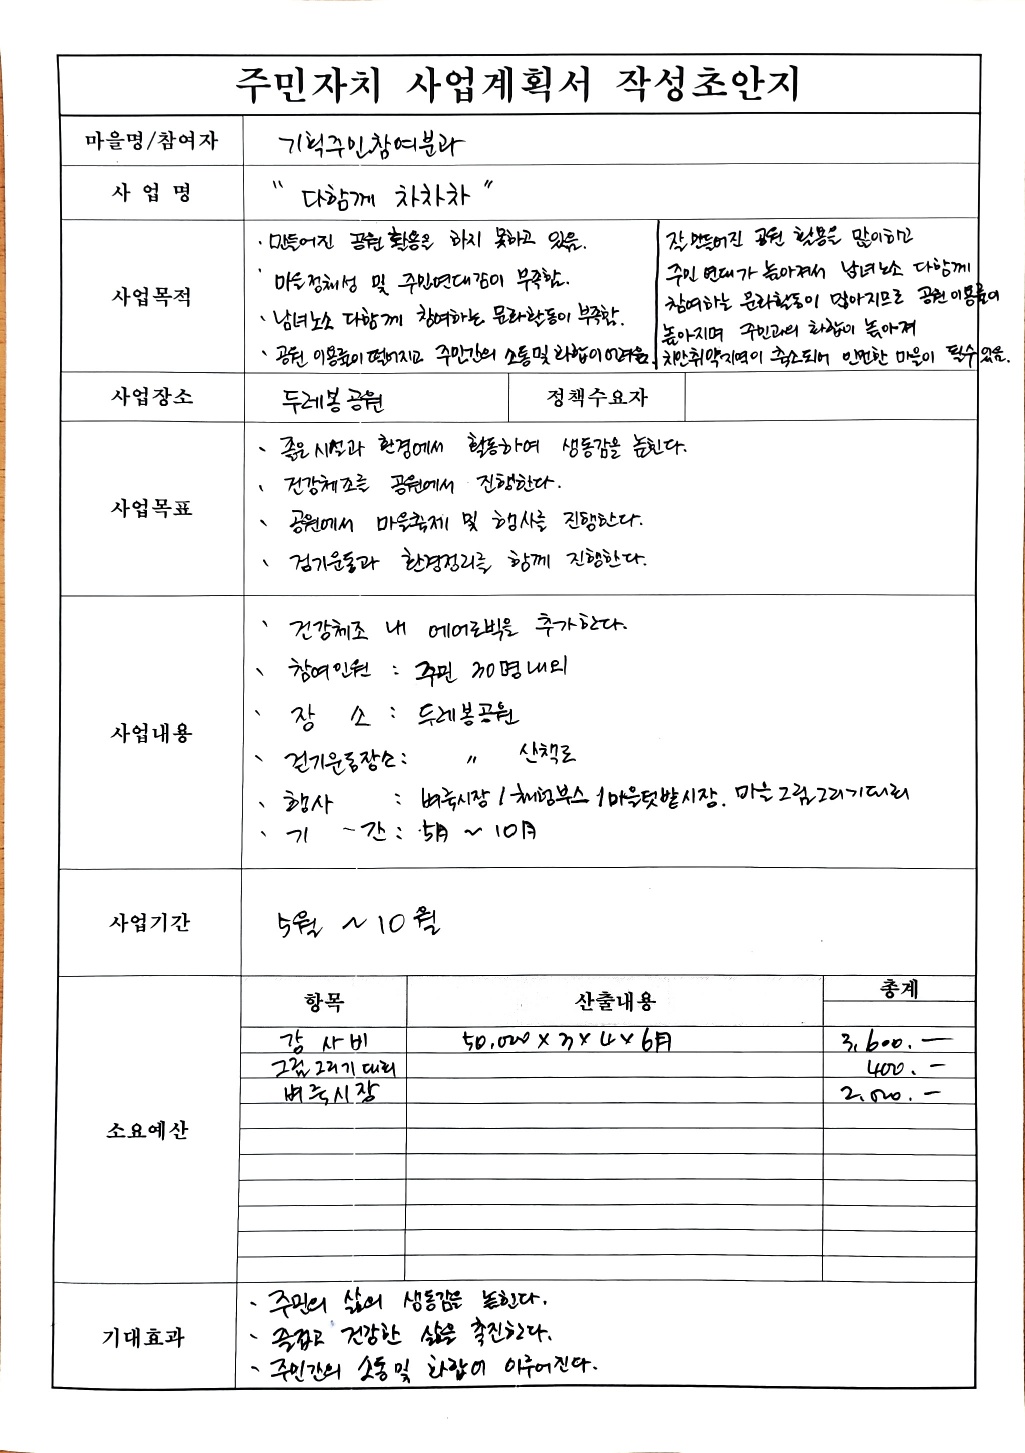 주민자치 사업계획서 작성초안지
마을명/참여자 기획주민참여분과
사 업 명 " 다함께 차차차 "
사업목적
· 만들어진 공원 활용을 하지 못하고 있음.
· 마을정체성 및 주민연대감이 부족함.
· 남녀노소 다함께 참여하는 문화활동이 부족함.
· 공원 이용률이 떨어지고 주민간의 소통 및 화합이 어려움.
잘 만들어진 공원 활용을 많이하고
주민 연대가 높아져서 남녀노소 다함께
참여하는 문화활동이 많아지므로 공원이용률이
높아지며 주민과의 화합이 높아져
치안취약지역이 축소되어 안전한 마을이 될수 있음.
사업장소 두레봉 공원 정책수요자
사업목표
· 좋은시설과 환경에서 활동하여 생동감을 높힌다.
· 건강체조를 공원에서 진행한다.
· 공원에서 마을축제 및 행사를 진행한다.
· 걷기운동과 환경정리를 함께 진행한다.
사업내용
· 건강체조 내 에어로빅을 추가한다.
· 참여인원 : 주민 30명 내외
· 장 소 : 두레봉공원
· 걷기운동장소 : 〃 산책로
· 행사 : 벼룩시장 / 체험부스 / 마을텃밭시장. 마을 그림그리기대회
· 기 간 : 5月 ~ 10月
사업기간 5월 ~ 10월
소요예산
항목 산출내용 총계
강 사 비 50,000 × 3 × 4 × 6月 3,600.—
그림 그리기 대회 400.—
벼룩시장 2,000.—
기대효과
· 주민의 삶의 생동감을 높힌다.
· 즐겁고 건강한 삶을 촉진한다.
· 주민간의 소통 및 화합이 이루어진다.